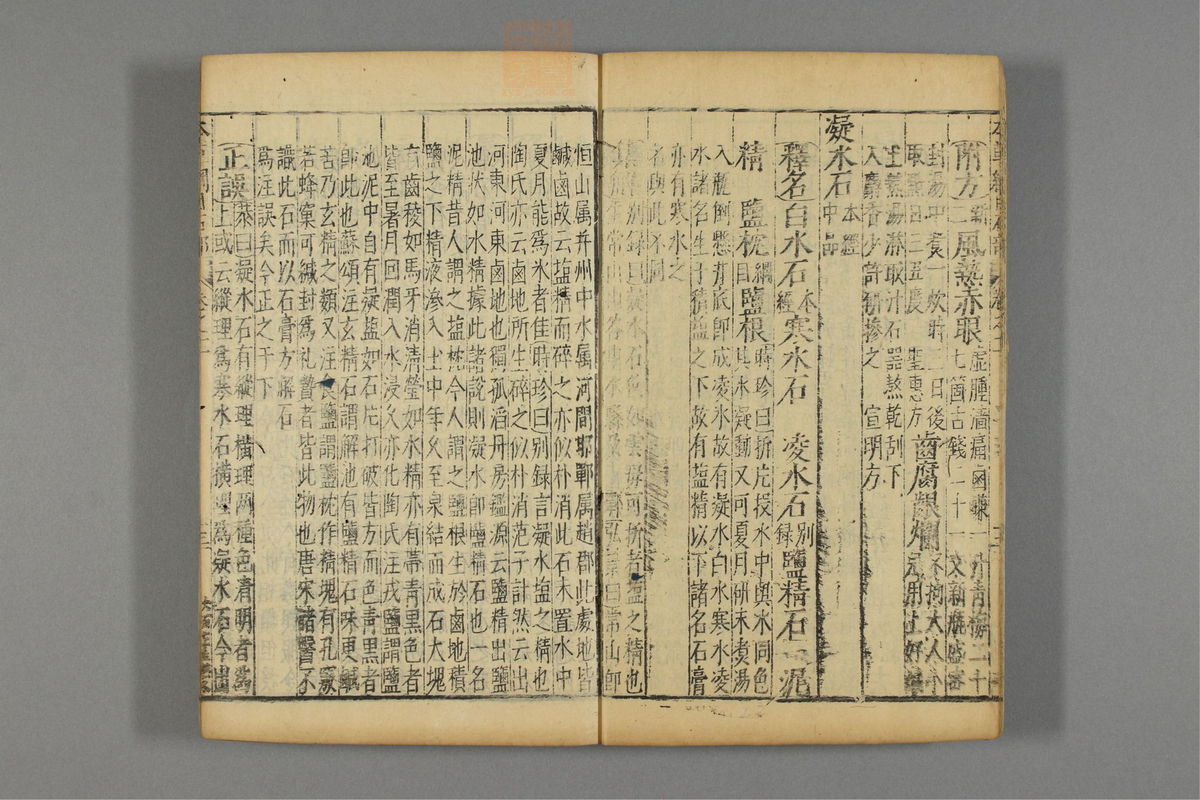 附方新二風熱赤眼虛腫濇痛鹵鹻一升青梅二十七箇古錢二十一文新瓶盛密
封湯中煮一炊時三日後取點日三五度 聖惠方齒腐齦爛不拘大人小兒用上好鹻
土熱湯淋取汁石器熬乾刮下入麝香少許研摻之 宣明方
凝水石本經中品
釋名白水石本經寒水石 凌水石別録鹽精石 泥
精 鹽枕綱目鹽根時珍曰拆片投水中與水同色其水凝動又可夏月研末煮湯
入瓶倒懸井底即成凌氷故有凝水白水寒水凌
水諸名生于積塩之下故有塩精以下諸名石膏
亦有寒水之
名與此不同
別録曰凝水石色如雲母可析者塩之精也
常山即
恒山属并州中水属河間邯鄲属趙郡此處地皆
鹹鹵故云塩精而碎之亦似朴消此石末置水中
夏月能爲氷者佳時珍曰別録言凝水塩之精也
陶氏亦云鹵地所生碎之似朴消范子計然云出
河東河東鹵地也獨孤滔丹房鑑源云鹽精出鹽
池状如水精據此諸說則凝水即鹽精石也一名
泥精昔人謂之塩枕今人謂之鹽根生於鹵地積
鹽之下精液滲入土中年久至泉結而成石大塊
有齒稜如馬牙消清瑩如水精亦有帯青黑色者
皆至暑月回潤入水浸久亦化陶氏注戎鹽謂鹽
池泥中自有凝塩如石片打破皆方而色青黒者
即此也蘇頌注玄精石謂解池有鹽精石味更鹹
苦乃玄精之類又注食鹽謂鹽枕作精塊有孔竅
若蜂窠可緘封爲礼贄者皆此物也唐宋諸醫不
識此石而以石膏方解石
爲注誤矣今正之于下
正誤㳟曰凝水石有縱理橫理兩種色清明者爲
上或云縱理爲寒水石橫理爲凝水石今出